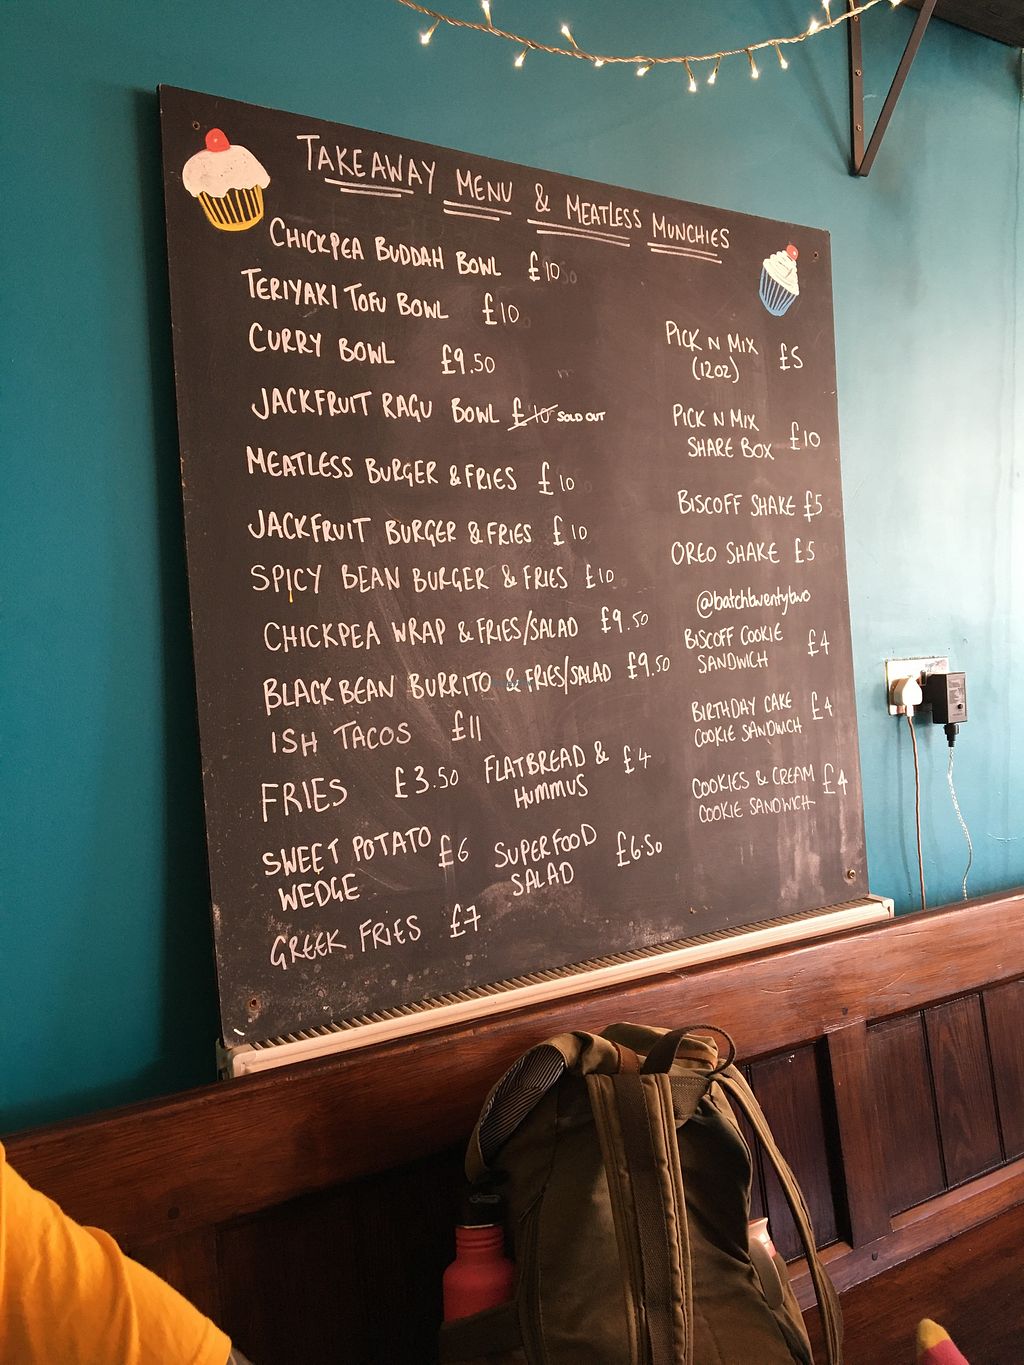 TAKEAWAY MENU & MEATLESS MUNCHIES
CHICKPEA BUDDAH BOWL £10
TERIYAKI TOFU BOWL £10
CURRY BOWL £9.50
JACKFRUIT RAGU BOWL £10 SOLD OUT
MEATLESS BURGER & FRIES £10
JACKFRUIT BURGER & FRIES £10
SPICY BEAN BURGER & FRIES £10
CHICKPEA WRAP & FRIES/SALAD £9.50
BLACK BEAN BURRITO & FRIES/SALAD £9.50
ISH TACOS £11
FRIES £3.50
FLATBREAD & £4
HUMMUS
SWEET POTATO £6
WEDGE
SUPERFOOD £6.50
SALAD
GREEK FRIES £7
PICK N MIX £5
(12oz)
PICK N MIX
SHARE BOX £10
BISCOFF SHAKE £5
OREO SHAKE £5
@batchtwentytwo
BISCOFF COOKIE £4
SANDWICH
BIRTHDAY CAKE £4
COOKIE SANDWICH
COOKIES & CREAM £4
COOKIE SANDWICH